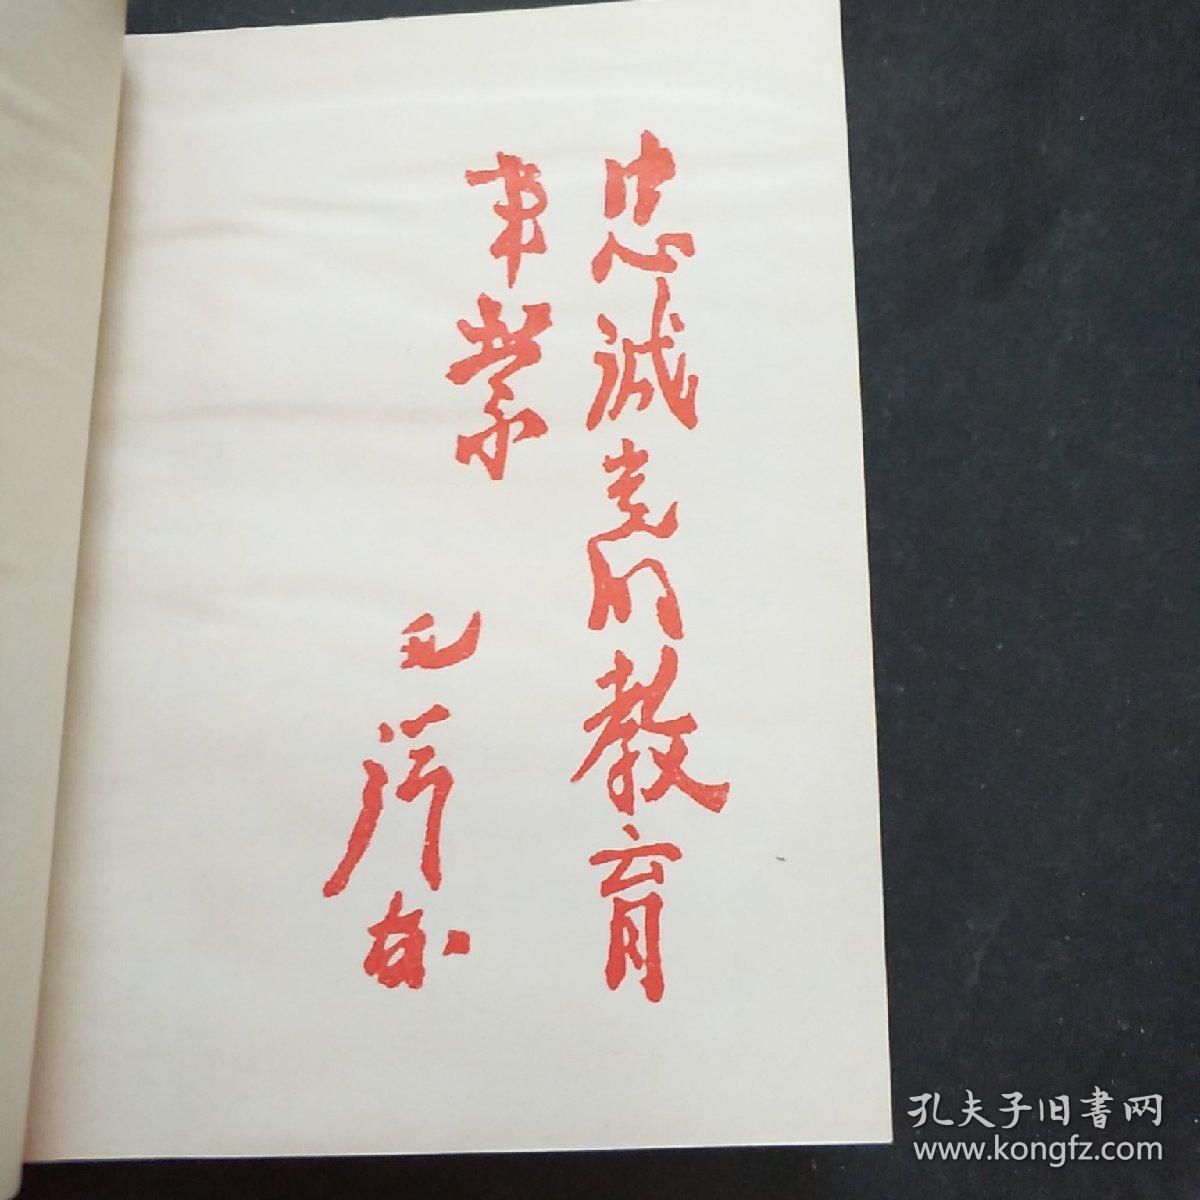 忠诚党的教育
事業
毛泽东
孔夫子旧書网
www.kongfz.com